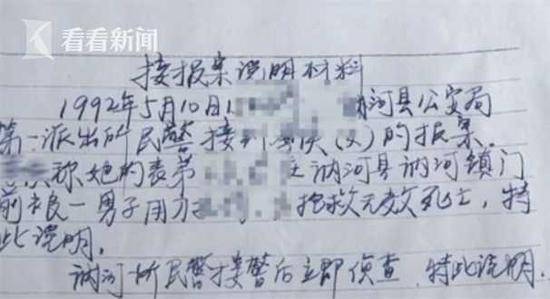 看看新闻
接报案说明材料
1992年5月10日 河县公安局
第一派出所民警接 (女)的报案.
称她的表弟 在讷河县讷河镇门
前被一男子用力 抢救无效死亡,特
此说明.
讷河所民警接警后立即侦查,特此说明.